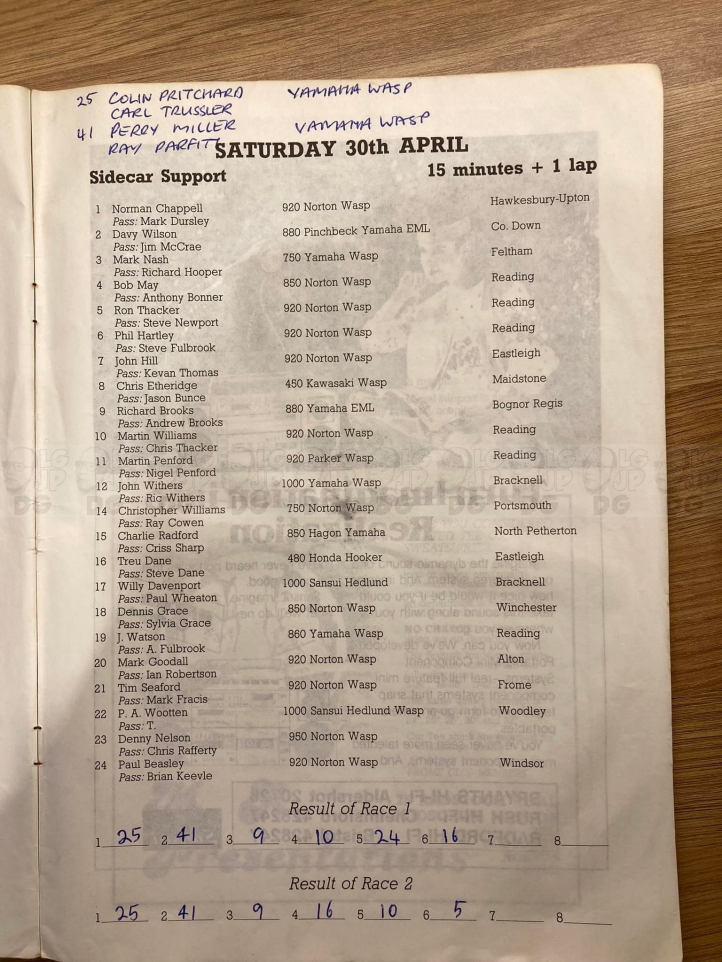 25 COLIN PRITCHARD YAMAHA WASP
CARL TRUSSLER
41 PERRY MILLER YAMAHA WASP
RAY PARFITT
SATURDAY 30th APRIL
Sidecar Support 15 minutes + 1 lap
1 Norman Chappell 920 Norton Wasp Hawkesbury-Upton
Pass: Mark Dursley
2 Davy Wilson 880 Pinchbeck Yamaha EML Co. Down
Pass: Jim McCrae
3 Mark Nash 750 Yamaha Wasp Feltham
Pass: Richard Hooper
4 Bob May 850 Norton Wasp Reading
Pass: Anthony Bonner
5 Ron Thacker 920 Norton Wasp Reading
Pass: Steve Newport
6 Phil Hartley 920 Norton Wasp Reading
Pas: Steve Fulbrook
7 John Hill 920 Norton Wasp Eastleigh
Pass: Kevan Thomas
8 Chris Etheridge 450 Kawasaki Wasp Maidstone
Pass: Jason Bunce
9 Richard Brooks 880 Yamaha EML Bognor Regis
Pass: Andrew Brooks
10 Martin Williams 920 Norton Wasp Reading
Pass: Chris Thacker
11 Martin Penford 920 Parker Wasp Reading
Pass: Nigel Penford
12 John Withers 1000 Yamaha Wasp Bracknell
Pass: Ric Withers
14 Christopher Williams 750 Norton Wasp Portsmouth
Pass: Ray Cowen
15 Charlie Radford 850 Hagon Yamaha North Petherton
Pass: Criss Sharp
16 Treu Dane 480 Honda Hooker Eastleigh
Pass: Steve Dane
17 Willy Davenport 1000 Sansui Hedlund Bracknell
Pass: Paul Wheaton
18 Dennis Grace 850 Norton Wasp Winchester
Pass: Sylvia Grace
19 J. Watson 860 Yamaha Wasp Reading
Pass: A. Fulbrook
20 Mark Goodall 920 Norton Wasp Alton
Pass: Ian Robertson
21 Tim Seaford 920 Norton Wasp Frome
Pass: Mark Fracis
22 P. A. Wootten 1000 Sansui Hedlund Wasp Woodley
Pass: T.
23 Denny Nelson 950 Norton Wasp
Pass: Chris Rafferty
24 Paul Beasley 920 Norton Wasp Windsor
Pass: Brian Keevle
Result of Race 1
1 25 2 41 3 9 4 10 5 24 6 16 7 8
Result of Race 2
1 25 2 41 3 9 4 16 5 10 6 5 7 8